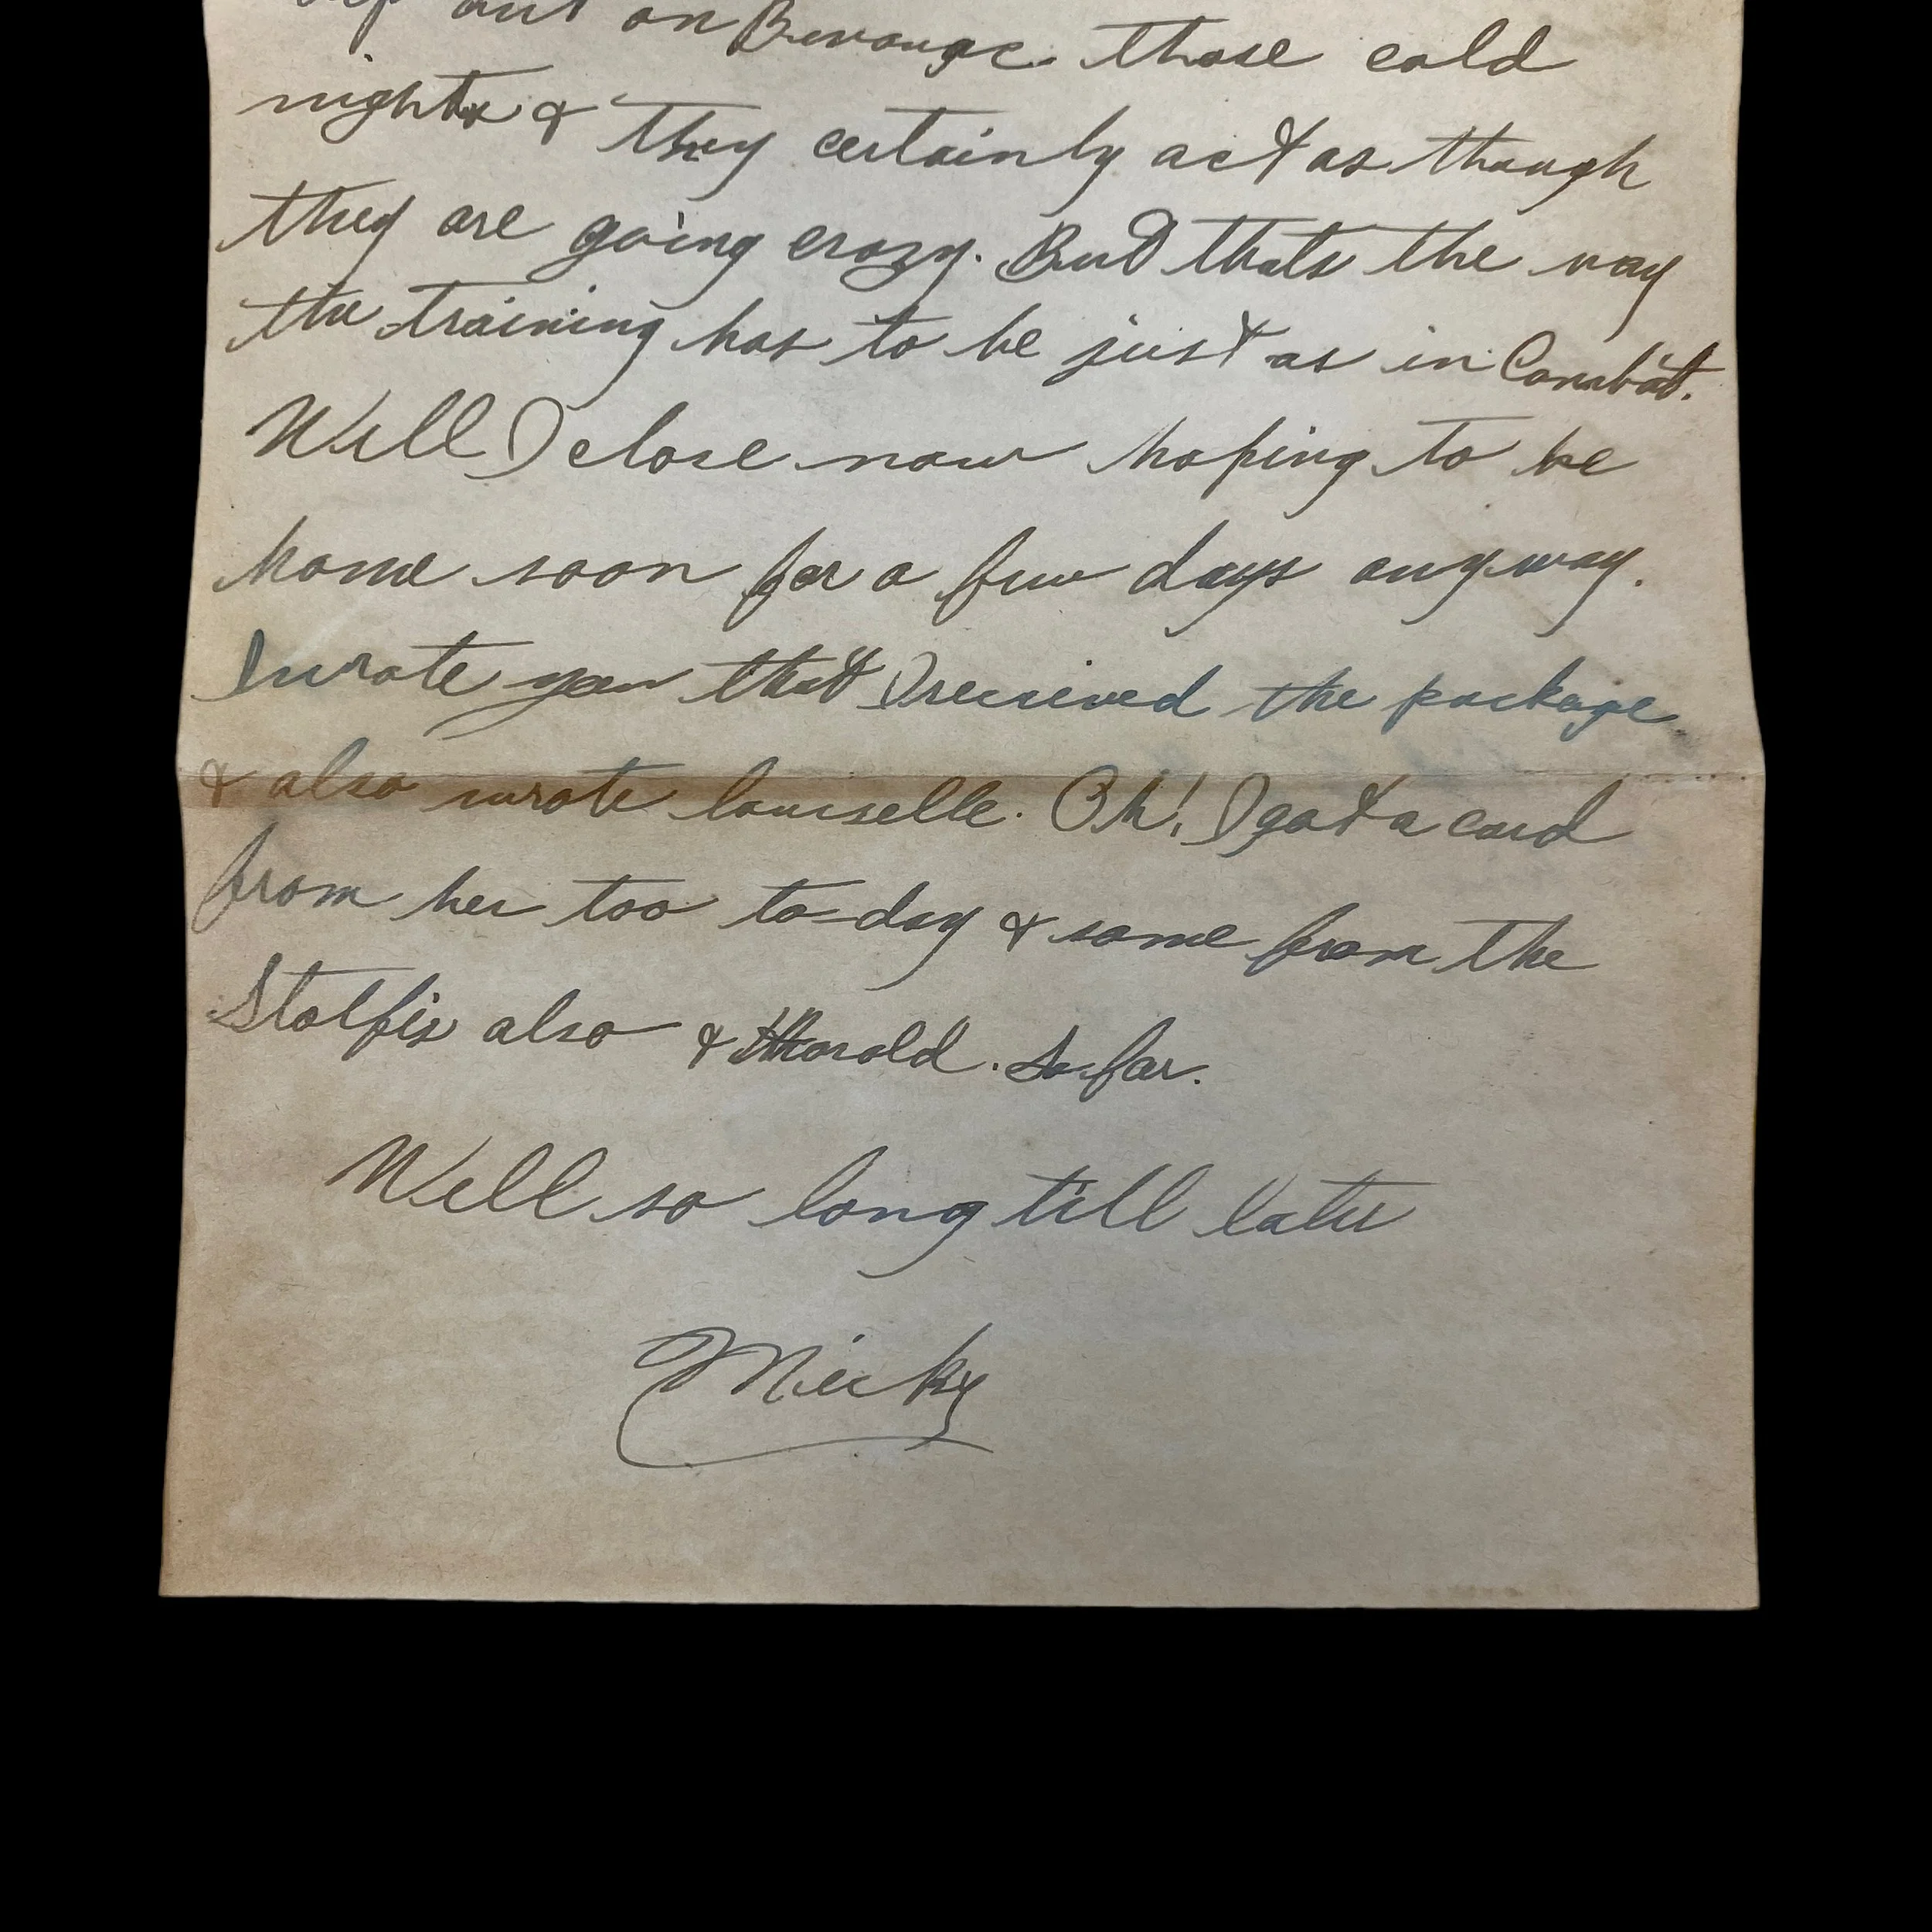 out on Bivouac. those cold
nights & they certainly act as though
they are going crazy. But thats the way
the training has to be just as in Combat.
Well I close now hoping to be
home soon for a few days anyway.
I wrote you that I received the package
& also wrote louiselle. Oh! I got a card
from her too to-day & some from the
Stolfis also & Harold. So far.
Well so long till later
Micky